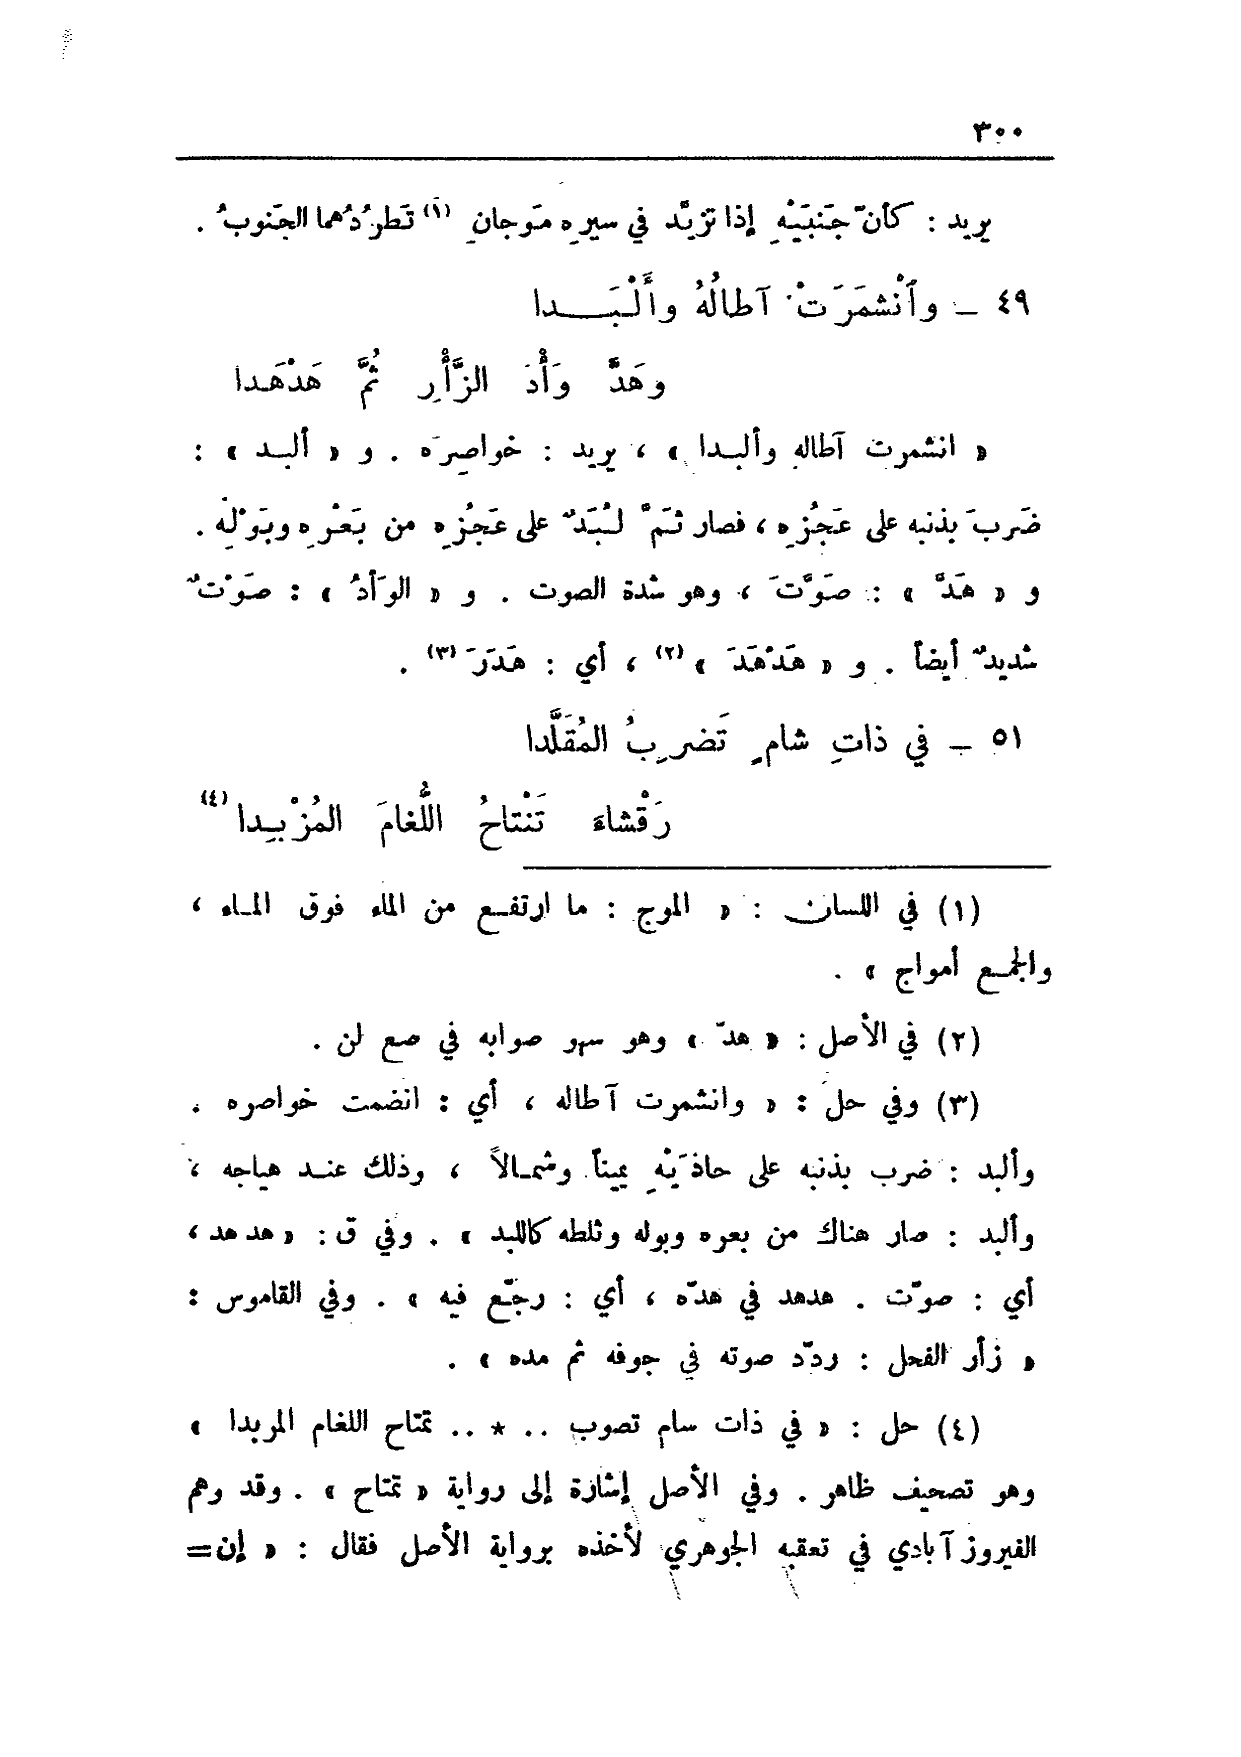 ٣٠٠
يريد : كأنّ جَنبَيْهِ إذا تزيَّد في سيرِه مَوجانِ (١) تَطرُدُهما الجَنوبُ .
٤٩ ــ وٱنْشمَرَتْ آطالُهُ وأَلْبَـــدا
وهَدَّ وَأْدَ الزَّأْرِ ثُمَّ هَدْهَدا
« انشمرت آطاله وألبـدا » ، يريد : خواصِرَه . و « ألبـد » :
ضَربَ بذنبه على عَجُزِه ، فصار ثَمَّ لُبَدٌ على عَجُزِه من بَعْرِه وبَوْلِه .
و « هَدَّ » : صَوَّتَ ، وهو شدة الصوت . و « الوَأدُ » : صَوْتٌ
شديدٌ أيضاً . و « هَدْهَدَ » (٢) ، أي : هَدَرَ (٣) .
٥١ ــ في ذاتِ شامٍ تَضربُ المُقَلَّدا
رَقْشاءَ تَنْتاحُ اللُّغامَ المُزْبِدا (٤)
(١) في اللسان : « الموج : ما ارتفـع من الماء فوق المـاء ،
والجمـع أمواج » .
(٢) في الأصل : « هدّ » وهو سهو صوابه في صع لن .
(٣) وفي حل : « وانشمرت آطاله ، أي : انضمت خواصره .
وألبد : ضرب بذنبه على حاذَيْهِ يميناً وشمـالاً ، وذلك عنـد هياجه ،
وألبد : صار هناك من بعره وبوله وثلطه كاللبد » . وفي ق : « هدهد ،
أي : صوّت . هدهد في هدّه ، أي : رجّع فيه » . وفي القاموس :
« زأر الفحل : ردّد صوته في جوفه ثم مده » .
(٤) حل : « في ذات سام تصوب .. * .. تمتاح اللغام المربدا »
وهو تصحيف ظاهر . وفي الأصل إشارة إلى رواية « تمتاح » . وقد وهم
الفيروز آبادي في تعقبه الجوهري لأخذه برواية الأصل فقال : « إن=